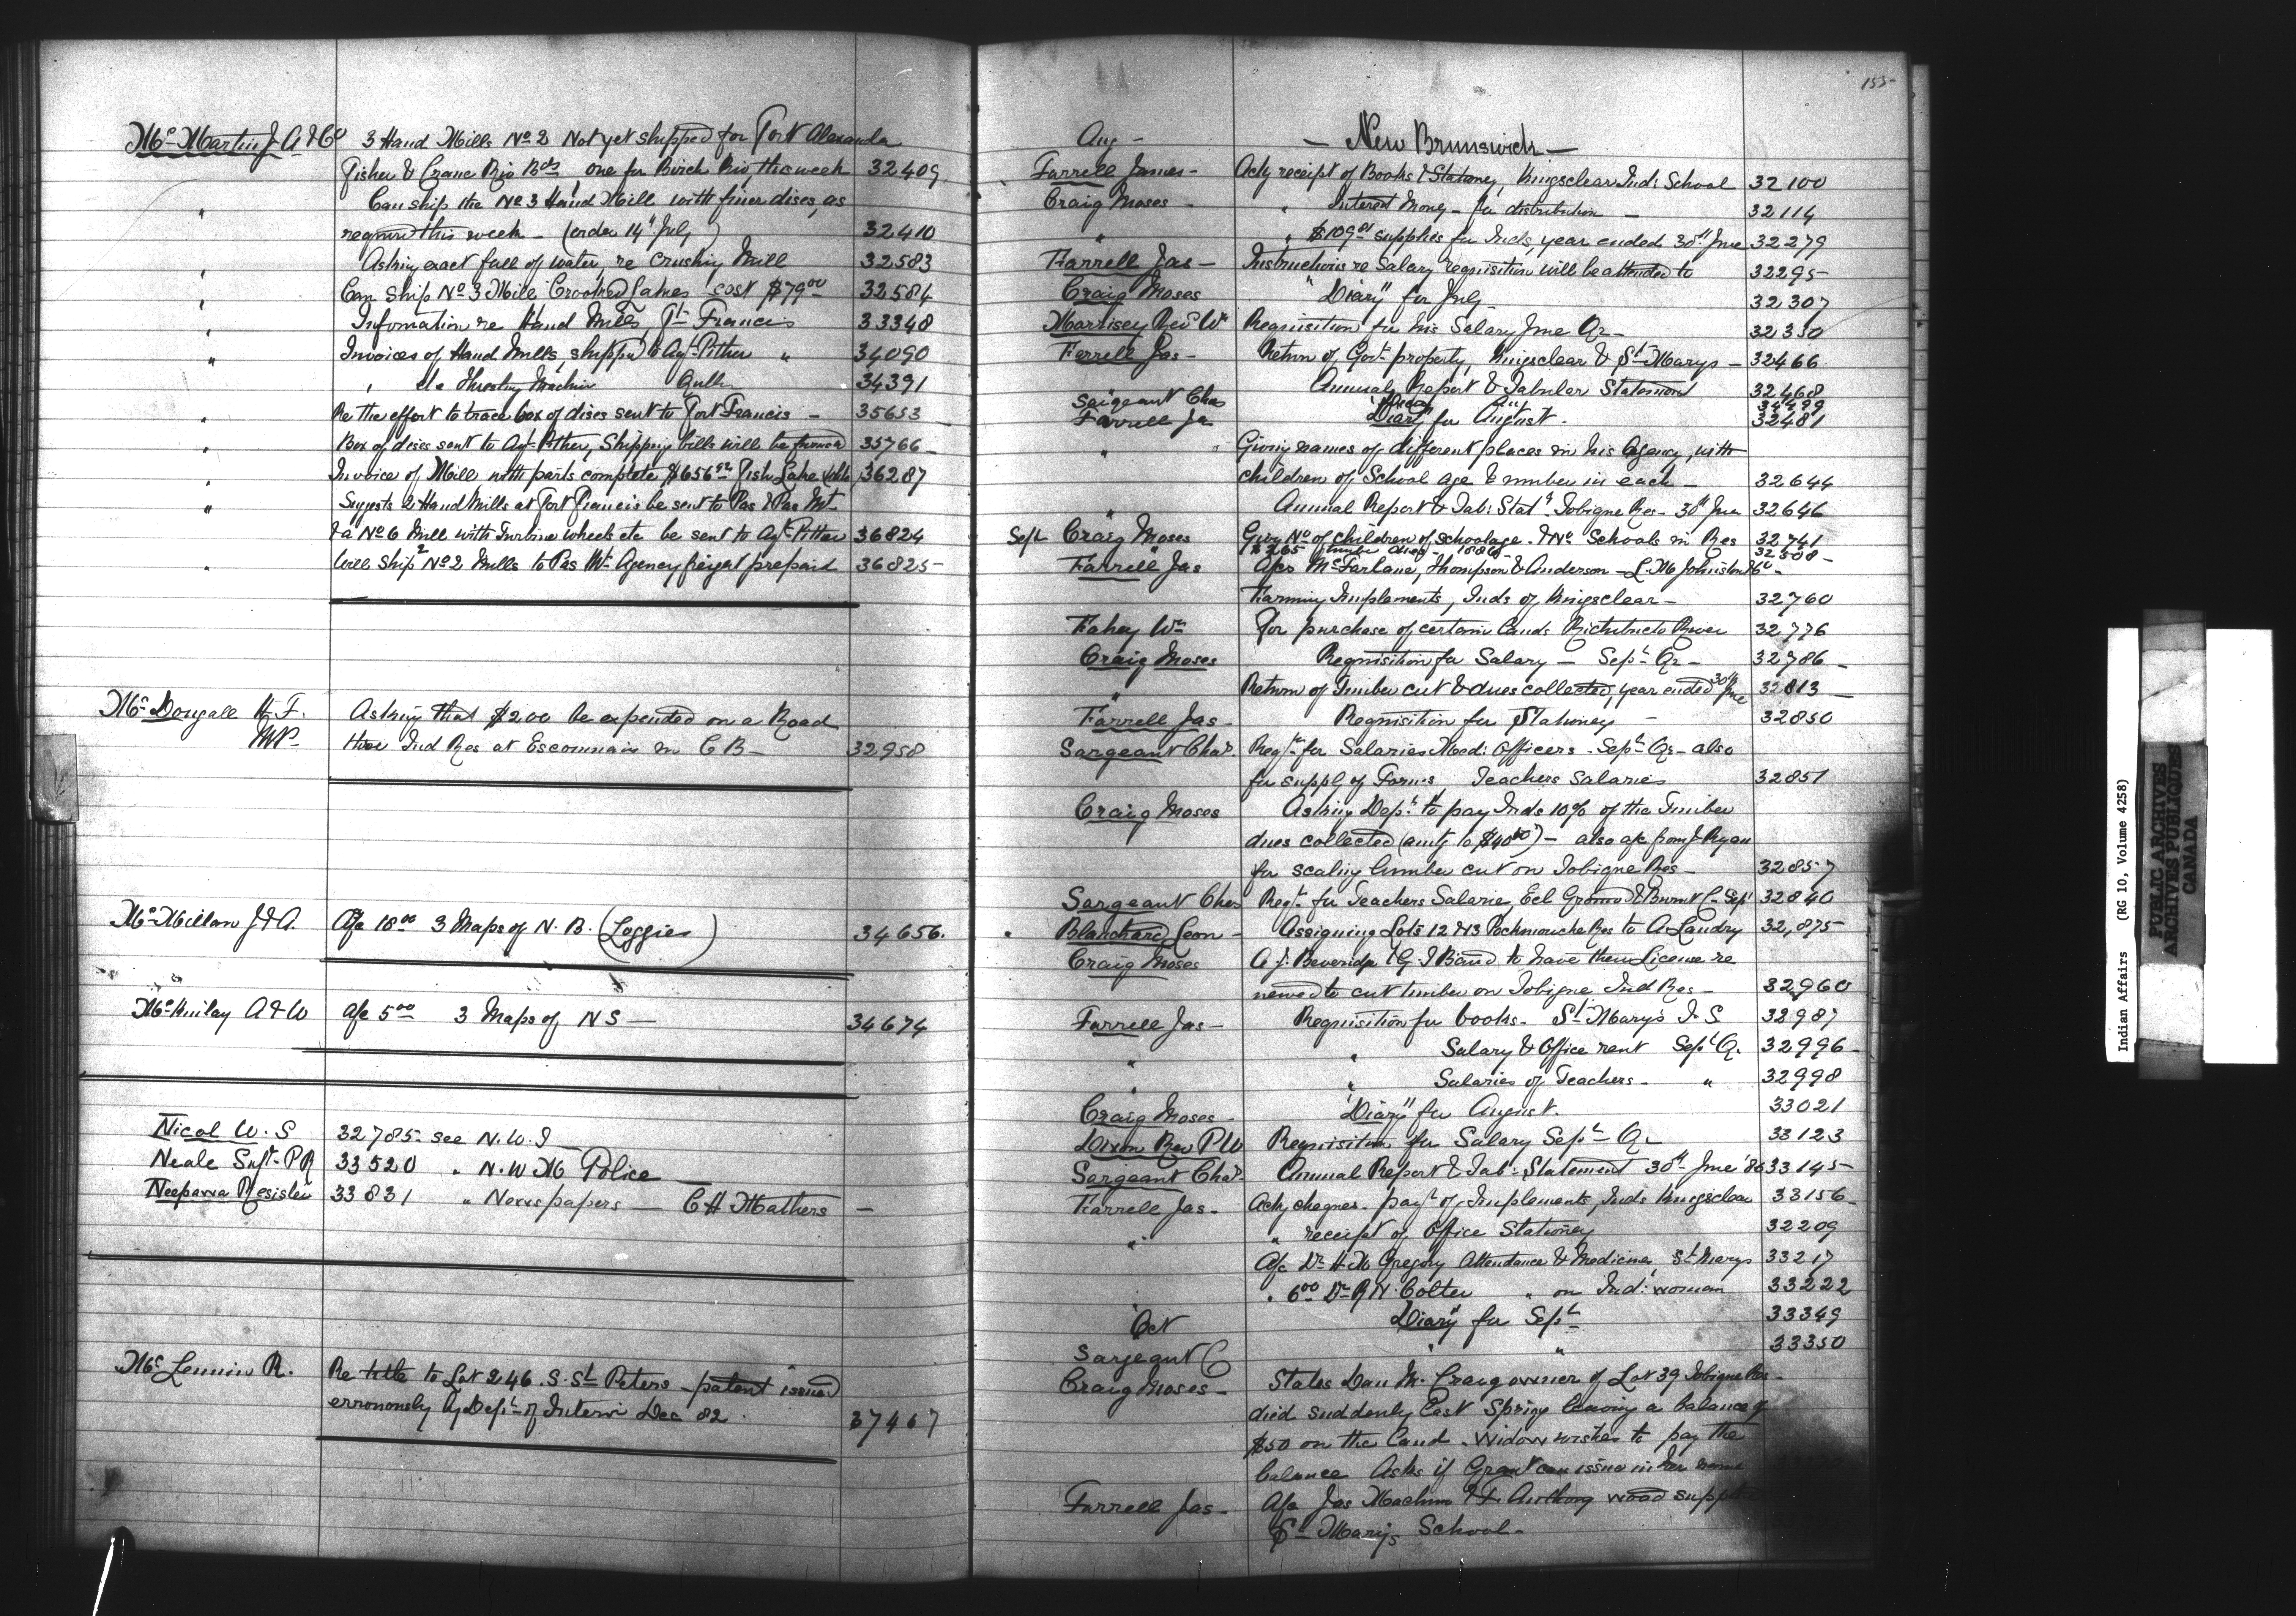 Mc Martin J. A & Co 3 Hand Mills No 2 Not yet shipped for Fort Alexander
Fisher & Crane Riv Bds one for Birch Riv this week 32409
" Can ship the No 3 Hand Mill with finer discs, as
required this week - (order 14th July) 32410
" Asking exact fall of water, re Crushing Mill 32583
" Can ship No 3 Mill Crooked Lakes cost $79.00 32584
" Information re Hand Mills, Ft Francis 33348
" Invoices of Hand Mills, shipped to Agt Pither " 34090
" do Threshing Machine 34391
" Re the effort to trace box of discs sent to Fort Francis - 35653
" Box of discs sent to Agt Pither, Shipping bills will be 35766
" Invoice of Mill with parts complete $656 Fish Lake 36287
" Suggests 2 Hand Mills at Fort Francis be sent to Pas & Pas Mt
& a No 6 Mill with Turbine wheels etc be sent to Agt Pither 36824
" Will ship 2 No 2 Mills to Pas Mt Agency freight prepaid 36825
Mc Dougall H. F. Asking that $200 be expended on a Road
MP. thro' Ind Res at Escasoni in C B - 32958
Mc Millan J & A. A/c 18.00 3 Maps of N. B. (Loggies) 34656.
Mc Kinlay A & W A/c 5.00 3 Maps of N S - 34674
Nicol W. S 32785 see N. W. T
Neale Supt. P R 33520 " N. W M Police
Neepawa Register 33831 " Newspapers - C H Mathers -
Mc Lennin R. Re title to Lot 246. S. St Peters - patent issued
erronously by Dept of Interior Dec 82. 37467
155-
Aug - - New Brunswick -
Farrell James - Ackg receipt of Books & Stationey, Kingsclear Ind: School 32100
Craig Moses - " Interest Money - for distribution - 32114
" " $109 supplies for Inds, year ended 30th June 32279
Farrell Jas - Instructions re Salary requisition will be attended to 32295
Craig Moses "Diary" for July - 32307
Morrisey Revd Wm Requisition for his Salary June Qr - 32330
Farrell Jas - Return of Govt property, Kingsclear & St Marys - 32466
Annual Report & Tabular Statement 32468
Sargeant Chas "Diary" " 32499
Farrell Ja "Diary" for August. 32481
" Giving names of different places in his Agency, with
children of School age & number in each - 32644
" Annual Report & Tab: Statt Tobique Res - 30th June 32646
Sept Craig Moses Giving No of children of school age. & No Schools in Res 32741
32508 -
Farrell Jas A/cs McFarlane, Thompson & Anderson - L. M Johnston & Co -
Farming Implements, Inds of Kingsclear - 32760
Fahey Wm For purchase of certain Lands Richibucto River 32776
Craig Moses Requisition for Salary - Sept Qr - 32786
" Return of Timber cut & dues collected, year ended 30th June 32813
Farrell Jas - Requisition for Stationey - 32850
Sargeant Chas. Reqtn for Salaries Med: Officers - Sept Qr - also
for supply of Forms Teachers Salaries 32851
Craig Moses Asking Dept to pay Inds 10% of the Timber
dues collected (amtg to $40.00) - also a/c from J Ryan
for scaling lumber cut on Tobique Res - 32857
Sargeant Chas Reqtn for Teachers Salaries, Eel Ground & Burnt C - Sept 32840
Blanchard Leon - Assigning Lots 12 & 13 Pockmouche Res to A Landry 32,875
Craig Moses A. J. Beveridge & G. T Baird to have their License re
newed to cut timber on Tobique Ind Res - 32960
Farrell Jas - Requisition for books - St Mary's I. S 32987
" " Salary & Office rent Sept Q. 32996
" " Salaries of Teachers - " 32998
Craig Moses - "Diary" for August. 33021
Dixon Rev P W Requisition for Salary Sept Qr 33123
Sargeant Chas. Annual Report & Tab: Statement 30th June '86 33145
Farrell Jas - Ackg cheques - payt of Implements, Inds Kingsclear 33156
" " receipt of Office Stationey 32209
A/c Dr H M Gregory Attendance & Medicine, St Marys 33217
" 6.00 Dr R N. Colter " on Ind: woman 33222
Oct Diary" for Sept 33349
Sargeant C " " 33350
Craig Moses - States Dan M. Craig owner of Lot 39 Tobique Res -
died suddenly last Spring leaving a balance of
$50 on the land. Widow wishes to pay the
balance Asks if Grant can issue in her name
Farrell Jas - A/c Jas Machum & F. Anthony wood supplied
St Marys School -
Indian Affairs (RG 10, Volume 4258)
PUBLIC ARCHIVES
ARCHIVES PUBLIQUES
CANADA